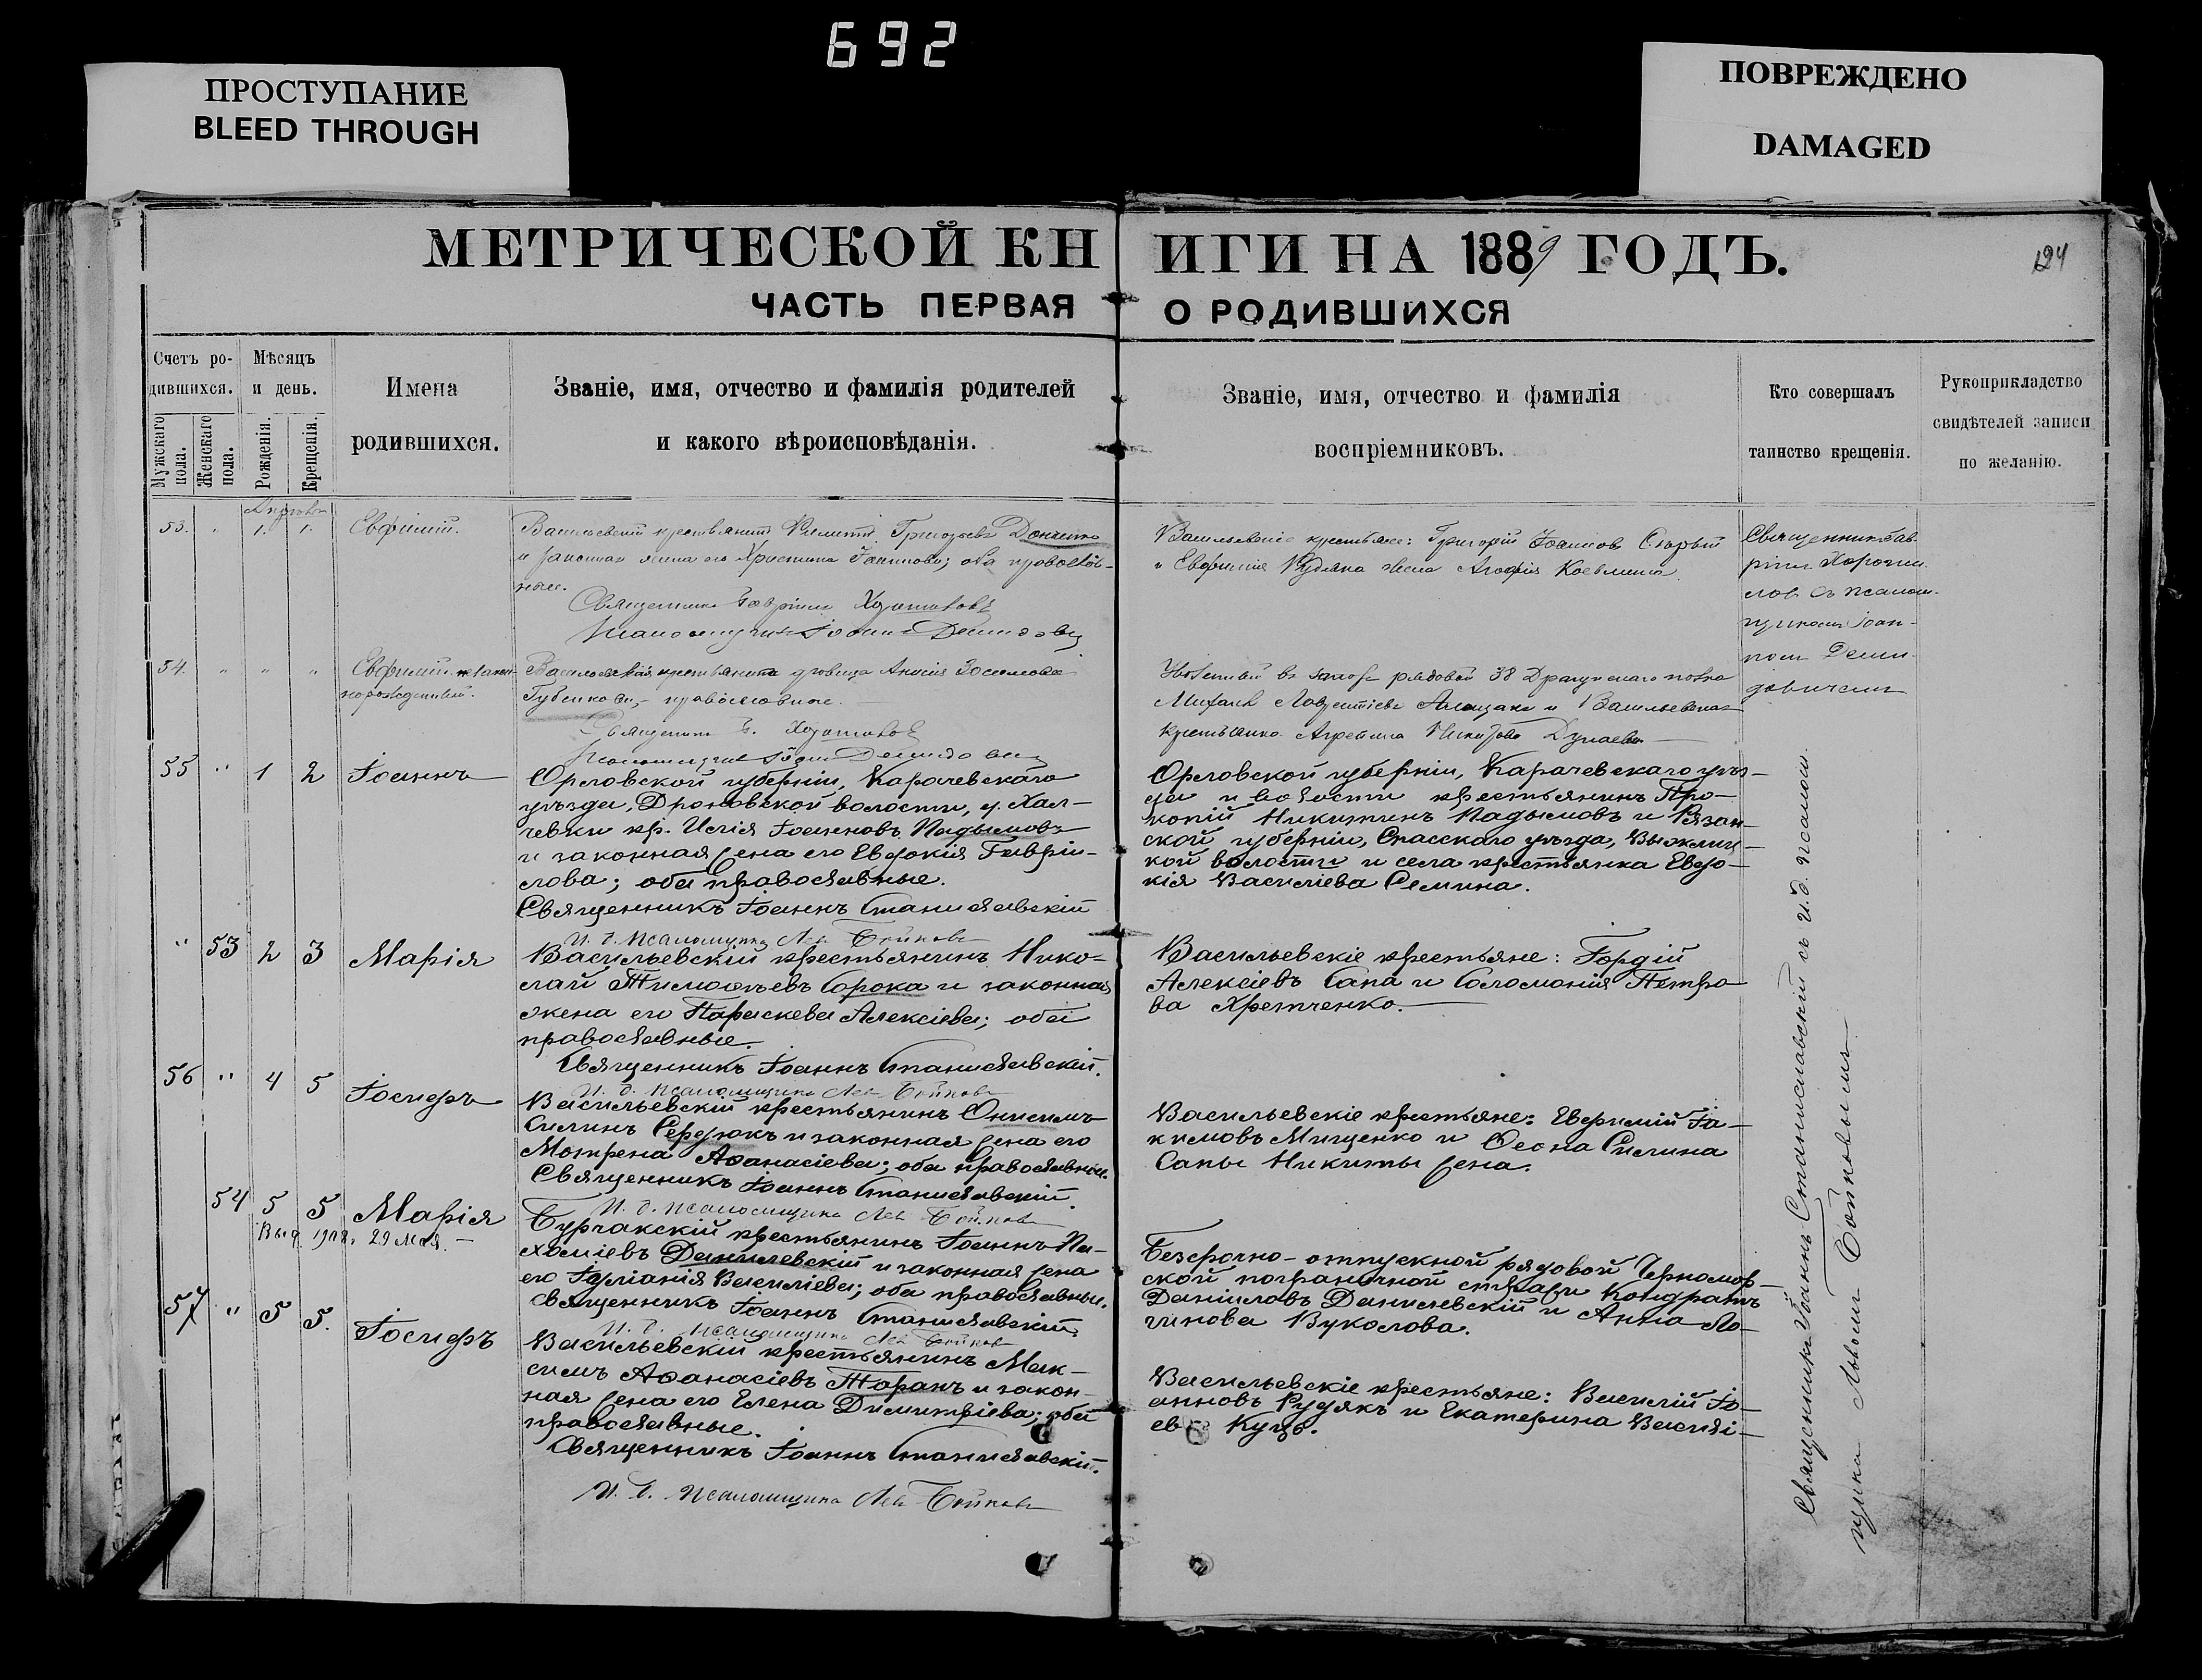 692
ПРОСТУПАНИЕ
BLEED THROUGH
ПОВРЕЖДЕНО
DAMAGED
МЕТРИЧЕСКОЙ КНИГИ НА 1889 ГОДЪ.
124
ЧАСТЬ ПЕРВАЯ О РОДИВШИХСЯ
Счетъ ро-
дившихся.
Мужскаго пола.
Женскаго пола.
Мѣсяцъ
и день.
Рожденія.
Крещенія.
Имена
родившихся.
Званіе, имя, отчество и фамилія родителей
и какого вѣроисповѣданія.
Званіе, имя, отчество и фамилія
воспріемниковъ.
Кто совершалъ
таинство крещенія.
Рукоприкладство
свидѣтелей записи
по желанію.
53. " 1. 1. Евфимій.
Васильевскій крестьянинъ Филиппъ Григорьевъ
и законная жена его Христина; оба православ-
ные.
Священникъ Гавріилъ
Псаломщикъ Іоаннъ Демидовичъ
Васильевскіе крестьяне: Григорій Іоанновъ
и Евфимія жена Агафія
Священникъ Гав-
ріилъ
съ псалом-
щикомъ Іоан-
номъ Деми-
довичемъ
54. " " " Евфимій незакон-
норожденный.
Васильевская крестьянка вдовица Анисія
Губенкова, православная.
Священникъ Г.
Псаломщикъ Іоаннъ Демидовичъ
Уволенный въ запасъ рядовой 38 Драгунскаго полка
Михаилъ Лаврентіевъ и Васильевская
крестьянка Агрепина Дунаева
55 " 1 2 Іоаннъ
Орловской губерніи, Карачевскаго
уѣзда, Дроновской волости, д. Хал-
чевки кр. Илія Іоанновъ Падымовъ
и законная жена его Евдокія Гавріи-
лова; оба православные.
Священникъ Іоаннъ Станиславскій
И. д. псаломщика Левъ Бойковъ
Орловской губерніи, Карачевскаго уѣз-
да и волости крестьянинъ Про-
копій Никитинъ Падымовъ и Рязан-
ской губерніи, Спасскаго уѣзда,
кой волости и села крестьянка Евдо-
кія Василіева Семина.
" 53 2 3 Марія
Васильевскій крестьянинъ Нико-
лай Тимофѣевъ Сорока и законная
жена его Параскева Алексіева; оба
православные.
Священникъ Іоаннъ Станиславскій.
И. д. псаломщика Левъ Бойковъ
Васильевскіе крестьяне: Гордій
Алексіевъ Сапа и Соломонія Петро-
ва Хретченко.
56 " 4 5 Іосифъ
Васильевскій крестьянинъ Онисимъ
Силинъ Сердюкъ и законная жена его
Мотрена Аѳанасіева; оба православные.
Священникъ Іоаннъ Станиславскій.
И. д. псаломщика Левъ Бойковъ
Васильевскіе крестьяне: Евфимій Іа-
кимовъ Мищенко и Ѳеона Силина
Сапы Никиты жена.
54 5 5 Марія
Выд. 1908 г. 29 Мая.
Бурчакскій крестьянинъ Іоаннъ Па-
хоміевъ Данилевскій и законная жена
его Іуліанія Василіева; оба православные.
Священникъ Іоаннъ Станиславскій.
И. д. псаломщика Левъ Бойковъ
Безсрочно-отпускной рядовой Черномор-
ской пограничной стражи Кондратъ
Даніиловъ Данилевскій и Анна Ло-
гинова Вуколова.
57 " 5 5. Іосифъ
Васильевскій крестьянинъ Мак-
симъ Аѳанасіевъ Таранъ и закон-
ная жена его Елена Димитріева; оба
православные.
Священникъ Іоаннъ Станиславскій.
И. д. псаломщика Левъ Бойковъ
Васильевскіе крестьяне: Василій Іо-
анновъ Рудякъ и Екатерина Василі-
ева Куцо.
Священникъ Іоаннъ Станиславскій съ и. д. псалом-
щика Львомъ Бойковымъ